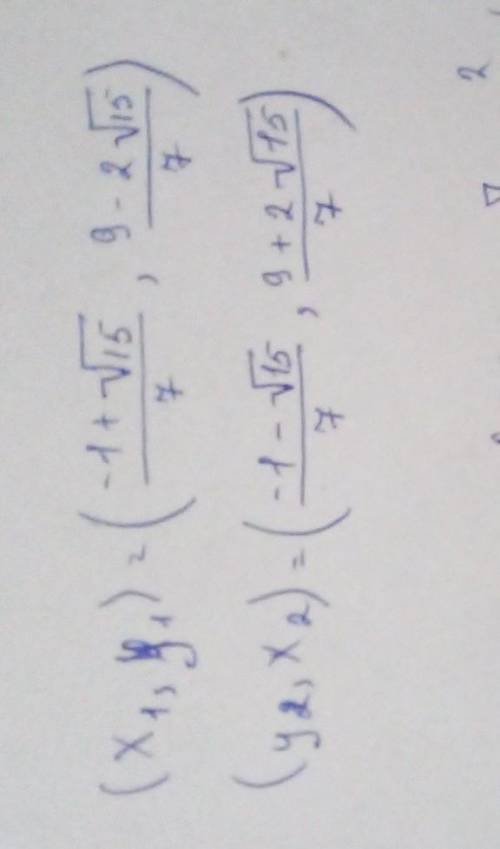 (x₁, y₁) = ( (-1 + √15)/7 , (9 - 2√15)/7 )
(y₂, x₂) = ( (-1 - √15)/7 , (9 + 2√15)/7 )
2